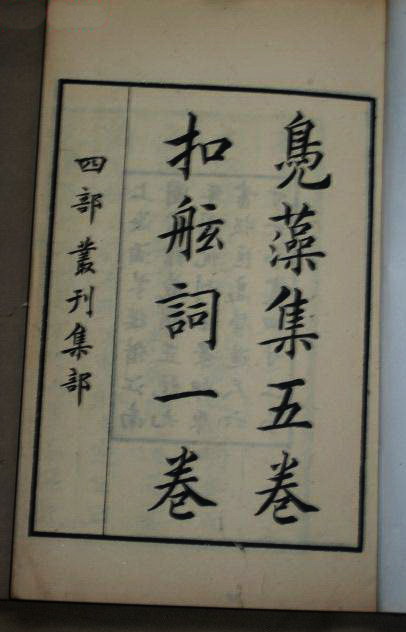 鳧藻集五卷
扣舷詞一卷
四部叢刊集部